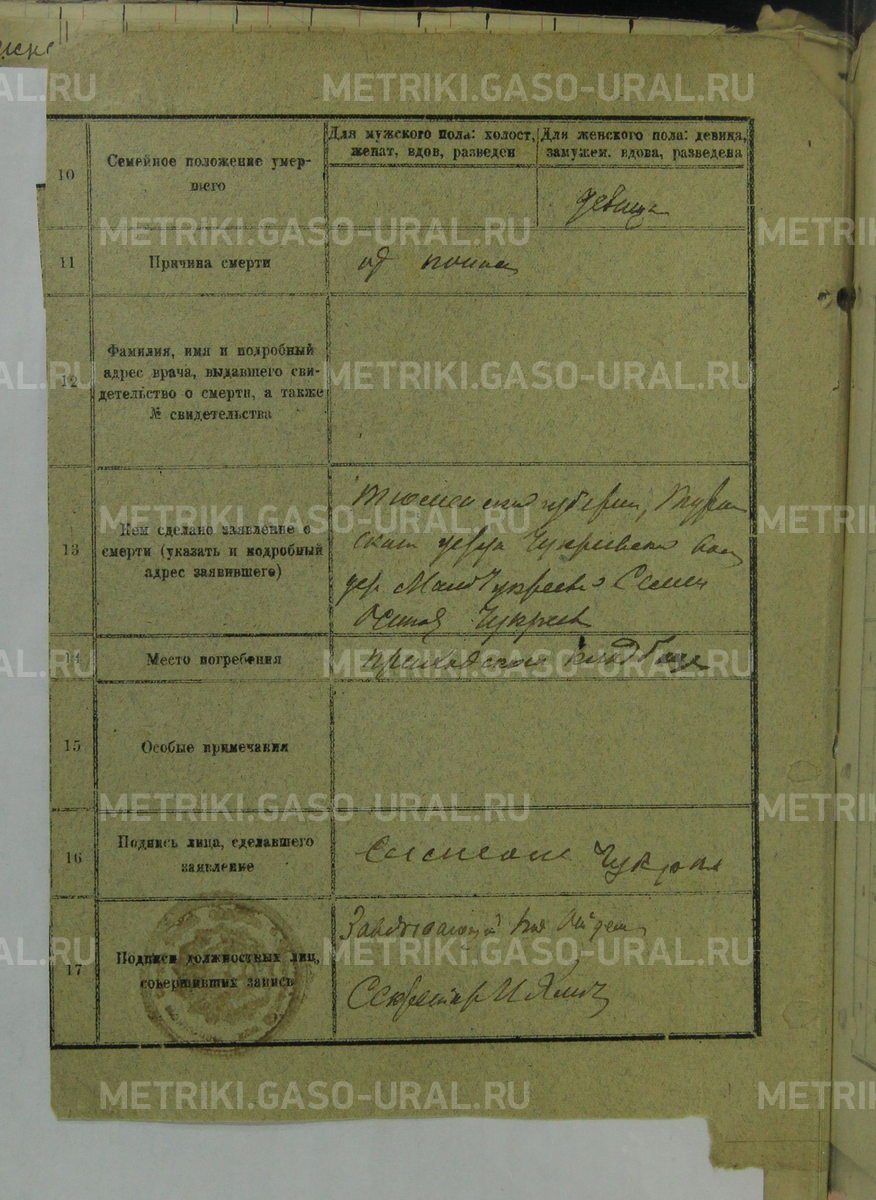 METRIKI.GASO-URAL.RU
10
Семейное положение умер-
шего
Для мужского пола: холост,
женат, вдов, разведен
Для женского пола: девица,
замужем, вдова, разведена
девица
11
Причина смерти
от
12
Фамилия, имя и подробный
адрес врача, выдавшего сви-
детельство о смерти, а также
№ свидетельства
13
Кем сделано заявление о
смерти (указать и подробный
адрес заявившего)
Тюменской губернии, Турин
ского Чукреевской
дер. Мало Чукреево Семен
Чукреев
14
Место погребения
приходском кладбище
15
Особые примечания
16
Подпись лица, сделавшего
заявление
17
Подписи должностных лиц,
совершивших запись
Заведывающий
Секретарь